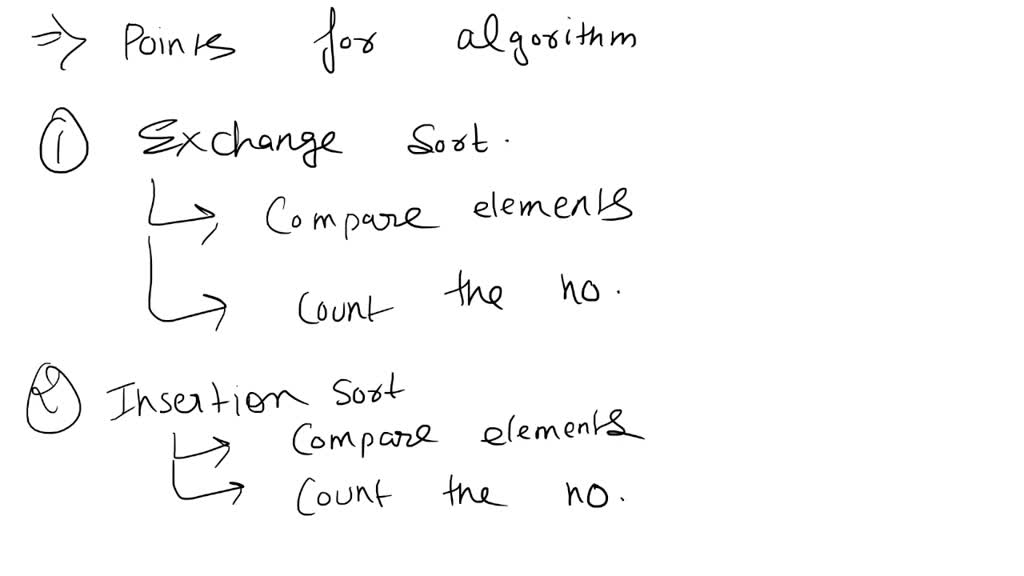 ⇒ Points for algorithm
① Exchange Sort.
↳ Compare elements
↳ Count the no.
② Insertion sort
↳ Compare elements
↳ Count the no.